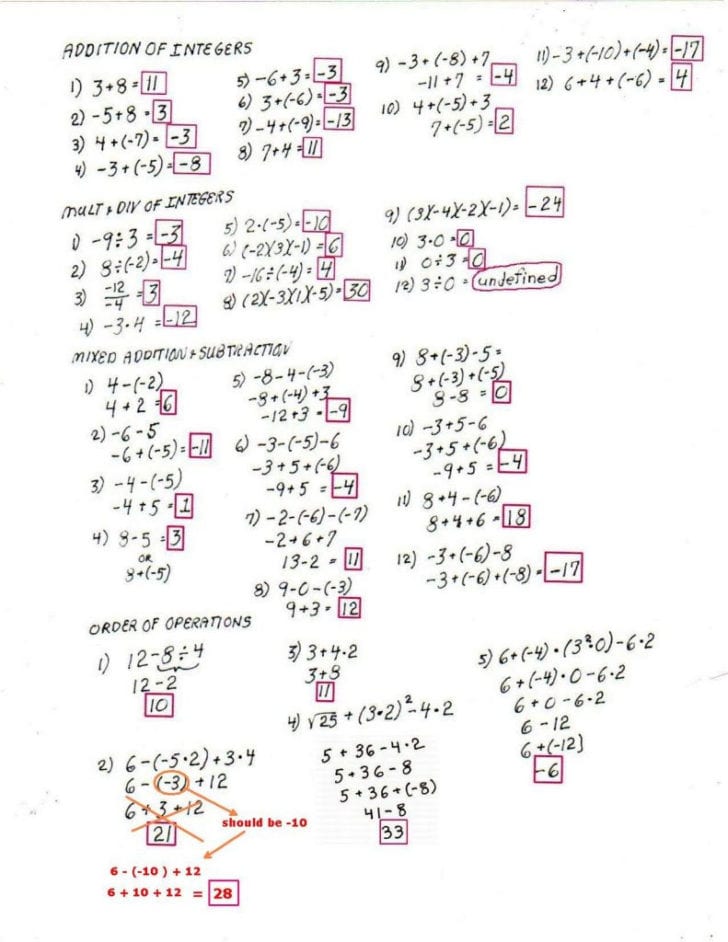 ADDITION OF INTEGERS
1) 3+8= 11
2) -5+8 = 3
3) 4+(-7)= -3
4) -3+(-5)= -8
5) -6+3= -3
6) 3+(-6)= -3
7) -4+(-9)= -13
8) 7+4= 11
9) -3+(-8)+7
-11+7 = -4
10) 4+(-5)+3
7+(-5)= 2
11) -3+(-10)+(-4)= -17
12) 6+4+(-6)= 4
MULT & DIV OF INTEGERS
1) -9÷3 = -3
2) 8÷(-2)= -4
3) -12/-4 = 3
4) -3·4 = -12
5) 2·(-5)= -10
6) (-2)(3)(-1) = 6
7) -16÷(-4)= 4
8) (2)(-3)(1)(-5)= 30
9) (3)(-4)(-2)(-1)= -24
10) 3·0= 0
11) 0÷3= 0
12) 3÷0 = undefined
MIXED ADDITION & SUBTRACTION
1) 4-(-2)
4+2 = 6
2) -6-5
-6+(-5)= -11
3) -4-(-5)
-4+5 = 1
4) 8-5 = 3
OR
8+(-5)
5) -8-4-(-3)
-8+(-4)+3
-12+3 = -9
6) -3-(-5)-6
-3+5+(-6)
-9+5 = -4
7) -2-(-6)-(-7)
-2+6+7
13-2 = 11
8) 9-0-(-3)
9+3= 12
9) 8+(-3)-5=
8+(-3)+(-5)
8-8 = 0
10) -3+5-6
-3+5+(-6)
-9+5 = -4
11) 8+4-(-6)
8+4+6 = 18
12) -3+(-6)-8
-3+(-6)+(-8)= -17
ORDER OF OPERATIONS
1) 12-8÷4
12-2
10
2) 6-(-5·2)+3·4
6-(-3)+12
6+3+12
21
should be -10
6 - (-10 ) + 12
6 + 10 + 12 = 28
3) 3+4·2
3+8
11
4) √25 + (3·2)²-4·2
5+36-4·2
5+36-8
5+36+(-8)
41-8
33
5) 6+(-4)·(3²·0)-6·2
6+(-4)·0-6·2
6+0-6·2
6-12
6+(-12)
-6